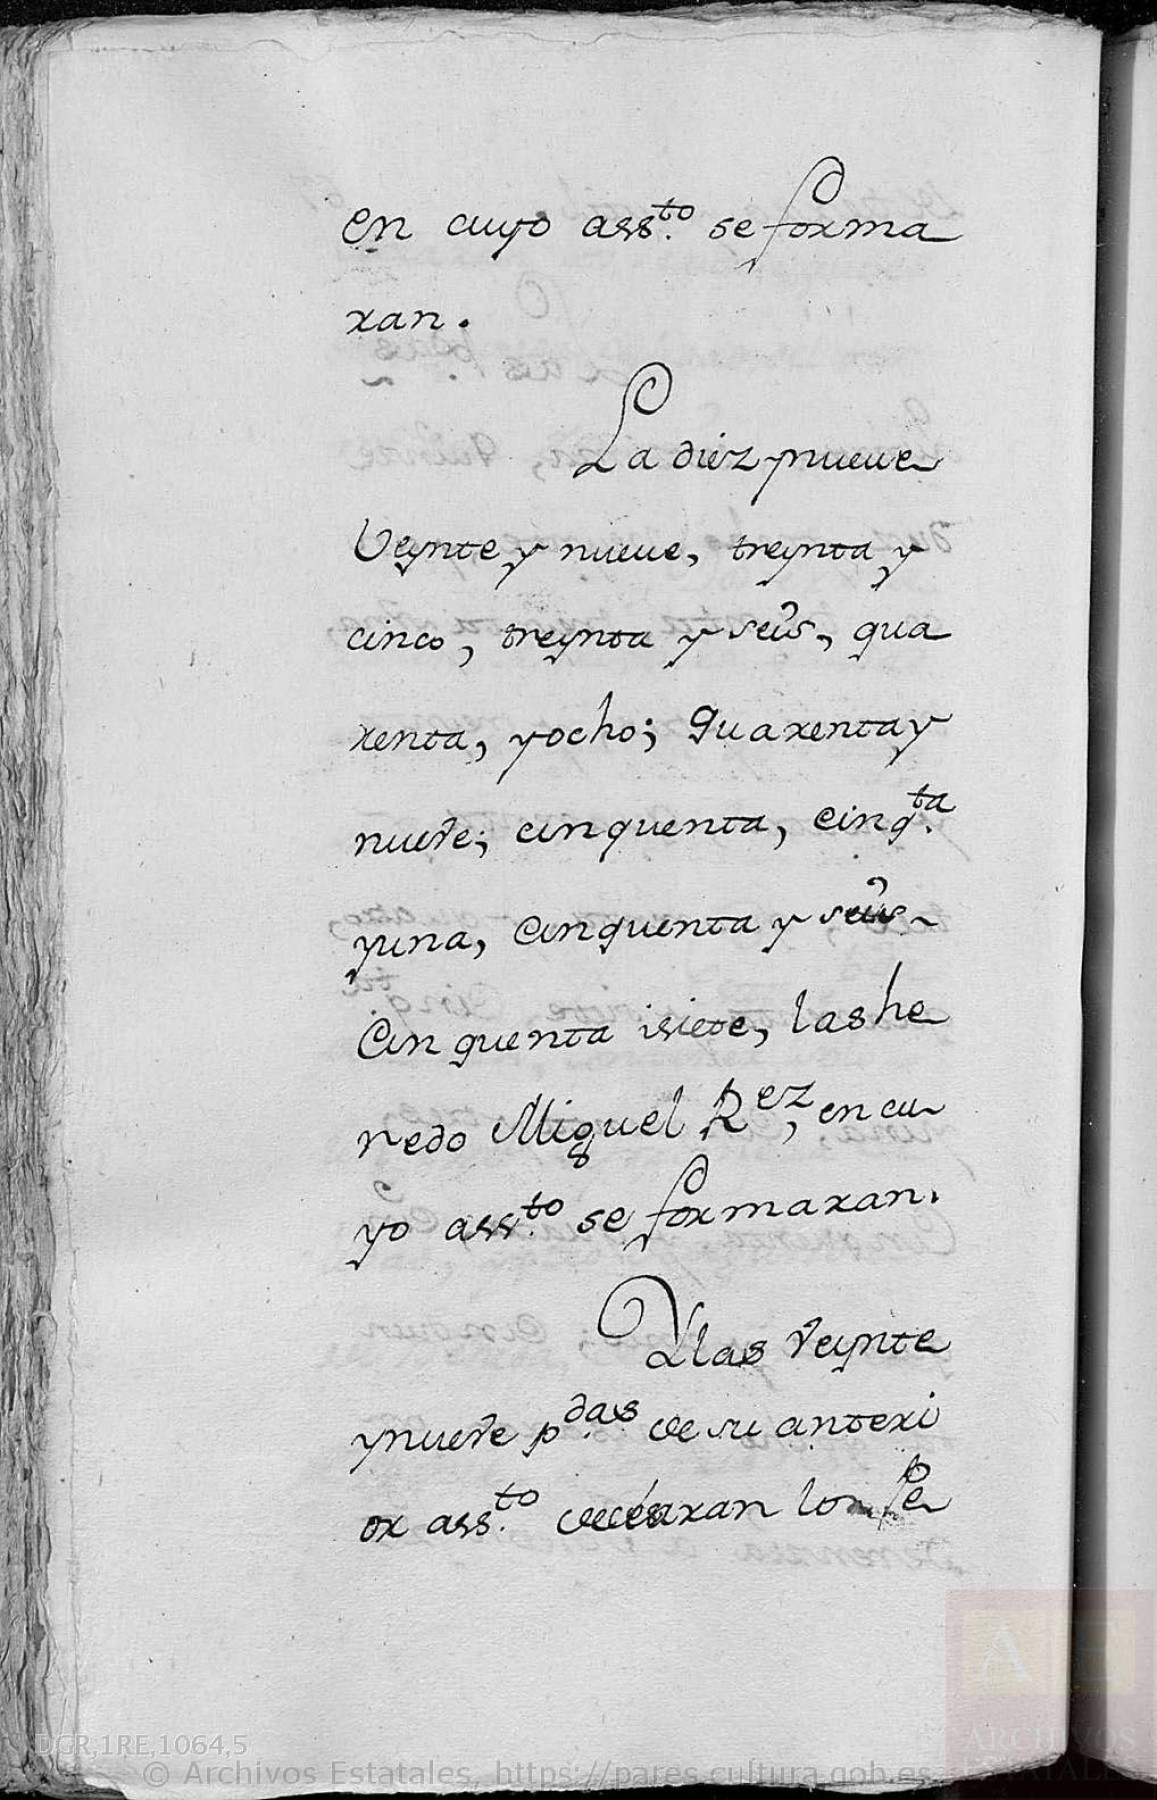 en cuyo ass.to se forma
ran.
La diez ynueue
Veynte y nueue, treynta y
cinco, treynta y seis, qua
renta, yocho; quarentay
nueve; cinquenta, cinq.ta
yuna, Cinquenta y seis
Cinquenta isiete, lashe
redo Miguel Rez, en cu
yo ass.to se formaran.
Ylas veynte
ynueve p.das de su anteri
or ass.to
DGR,1RE,1064,5
© Archivos Estatales, https://pares.cultura.gob.es
ARCHIVOS
ESTATALES